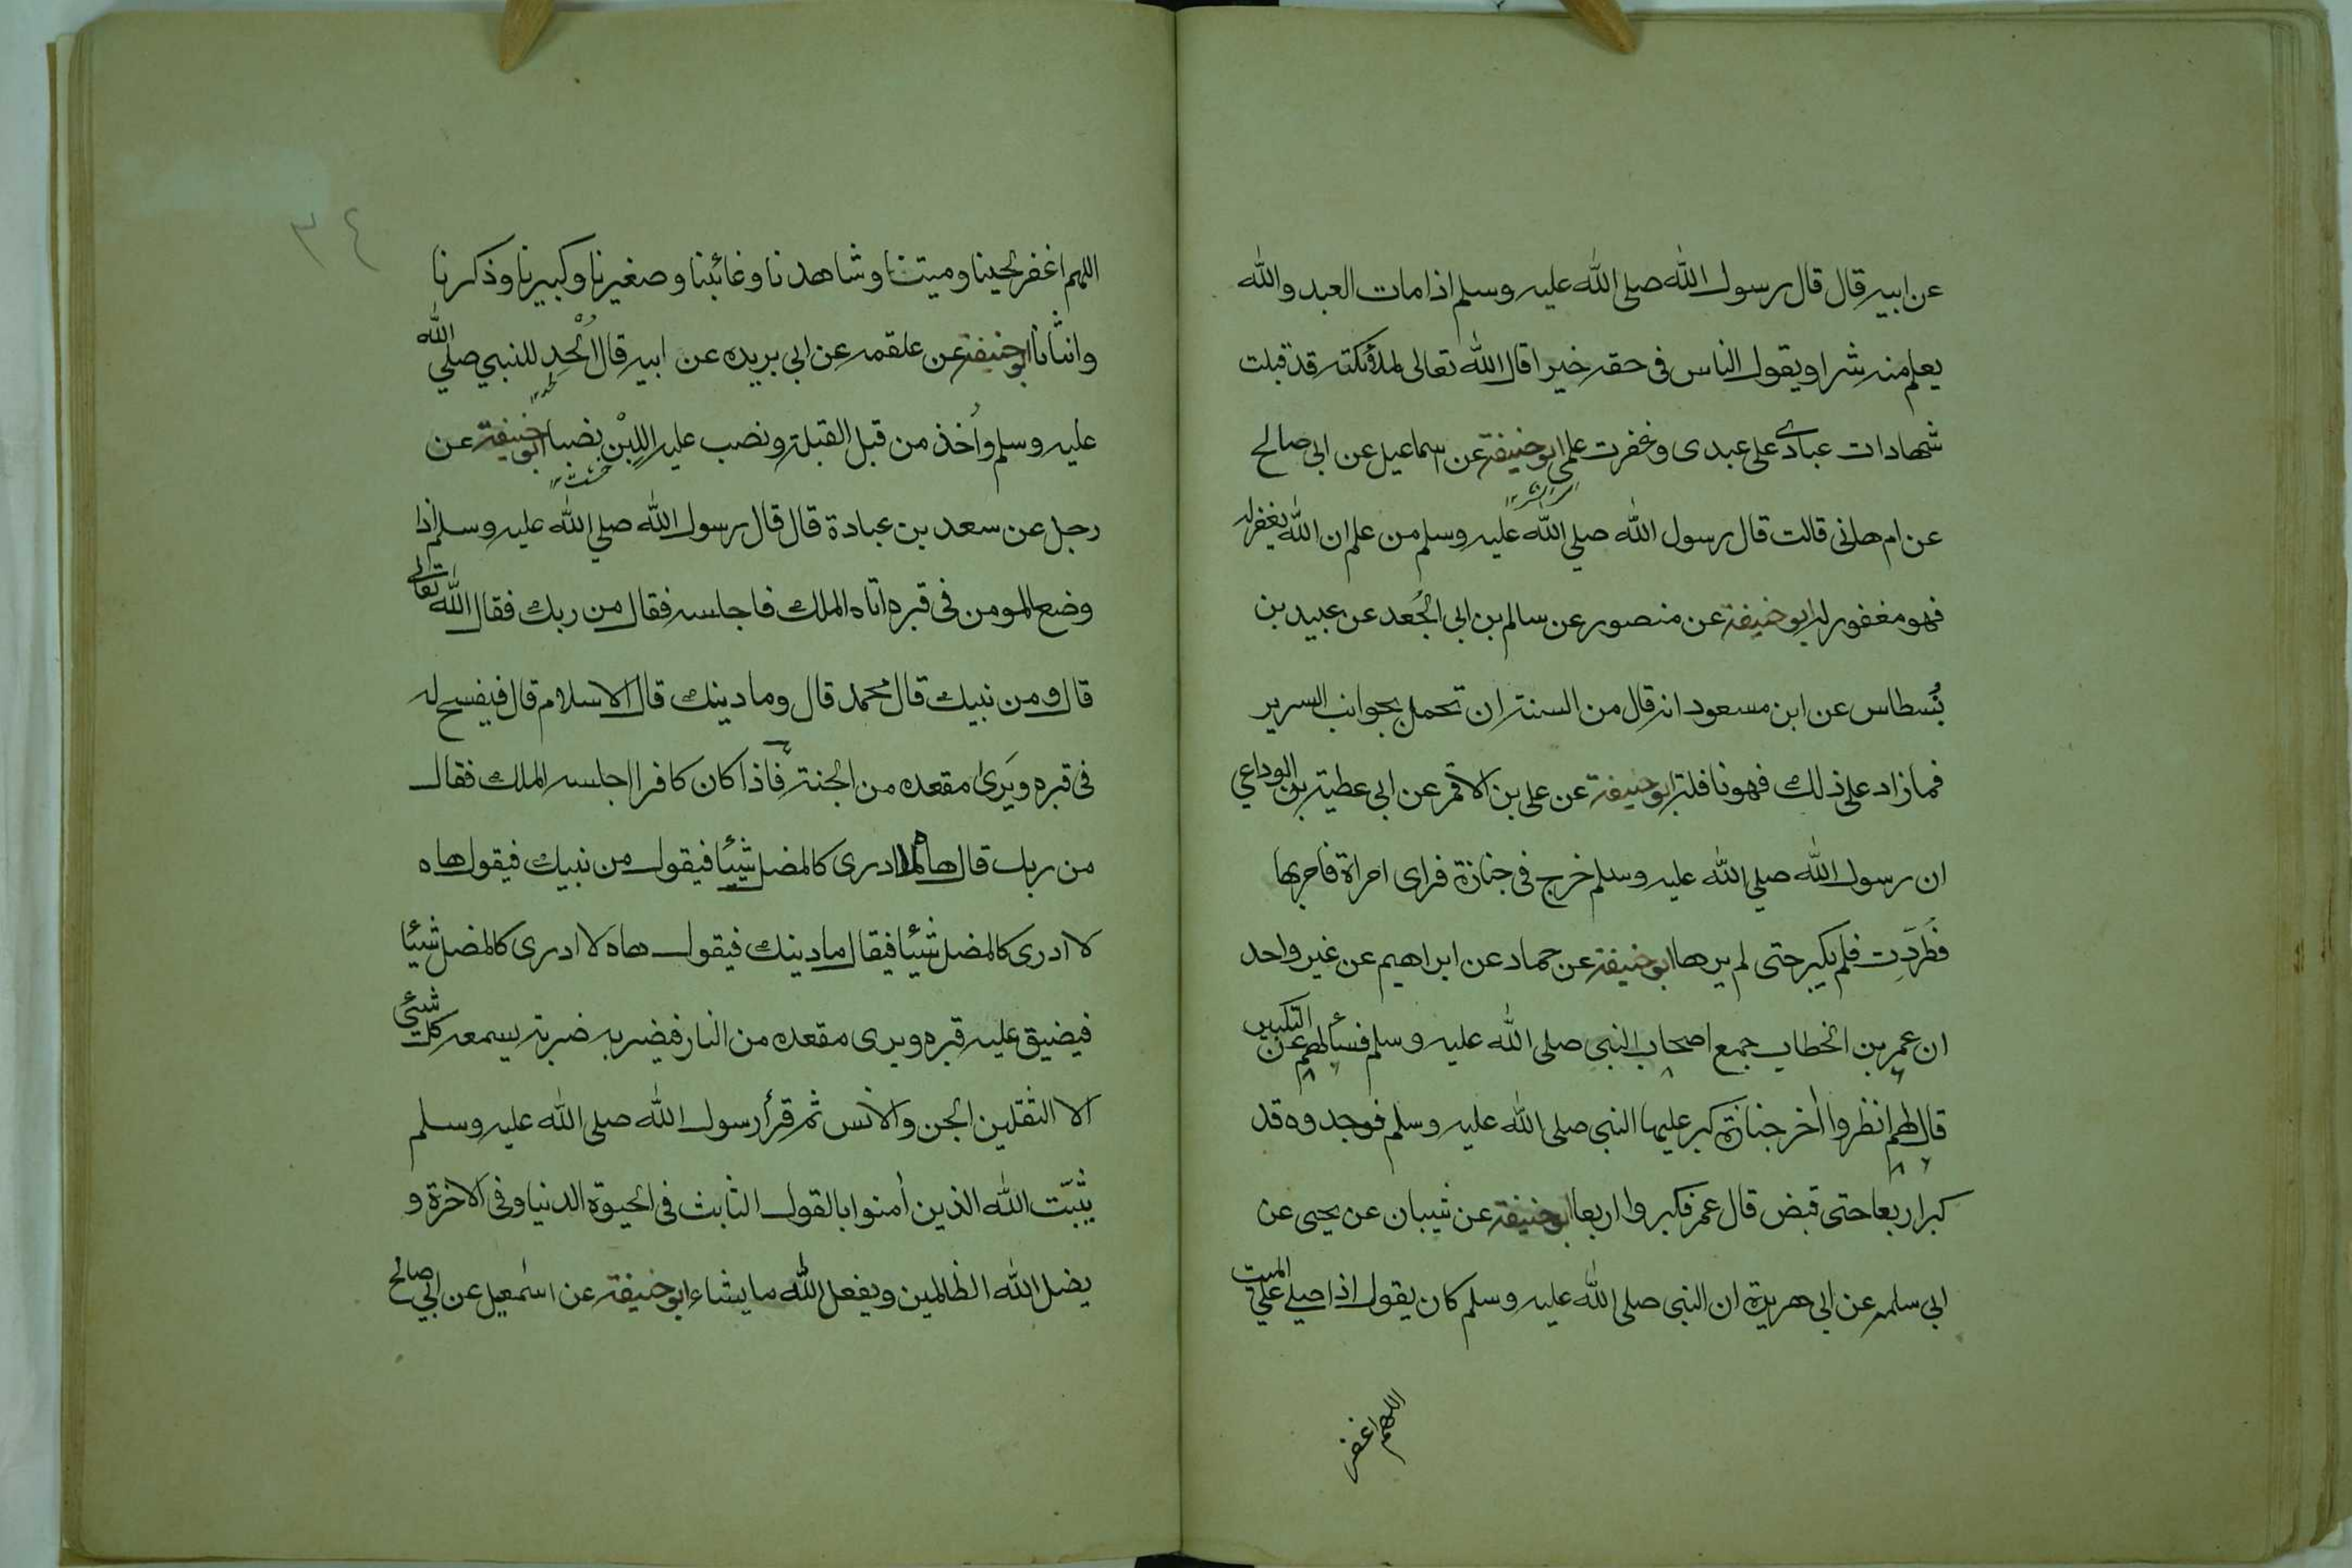 عن ابيه قال قال رسول الله صلى الله عليه وسلم اذا مات العبد والله
يعلم منه شرا ويقول الناس فى حقه خيرا قال الله تعالى لملائكته قد قبلت
شهادات عبادى على عبدى وغفرت علمى ابو حنيفة عن اسماعيل عن ابى صالح
عن ام هانى قالت قال رسول الله صلي الله عليه وسلم من علم ان الله يغفر له
فهو مغفور له ابو حنيفة عن منصور عن سالم بن ابى الجُعد عن عبيد بن
نُسطاس عن ابن مسعود انه قال من السنة ان تحمل بجوانب السرير
فما زاد على ذلك فهو نافلة ابو حنيفة عن على بن الاقمر عن ابى عطية بن الوداعي
ان رسول الله صلي الله عليه وسلم خرج فى جنازة فراى امراة فامر بها
فطُردَت فلم يكبر حتى لم يرها ابو حنيفة عن حماد عن ابراهيم عن غير واحد
ان عمر بن الخطاب جمع اصحاب النبى صلى الله عليه وسلم فسألهم عن التكبير
قال لهم انظروا أخر جنازة كبر عليها النبى صلى الله عليه وسلم فوجدوه قد
كبر اربعا حتى قبض قال عمر فكبروا اربعا ابو حنيفة عن شيبان عن يحيى عن
ابى سلمه عن ابى هريرة ان النبى صلى الله عليه وسلم كان يقول اذا صلى علي الميت
اللهم اغفر
٣٤
اللهم اغفر لحينا وميتنا وشاهدنا وغائبنا وصغيرنا وكبيرنا وذكرنا
وانثانا ابو حنيفة عن علقمه عن ابى بريده عن ابيه قال اُلْحِد للنبي صلي الله
عليه وسلم واُخذ من قبل القبلة ونصب عليه اللبْن نصبا ابو حنيفة عن
خشت
رجل عن سعد بن عبادة قال قال رسول الله صلي الله عليه وسلم اذا
وضع المومن فى قبره اتاه الملك فاجلسه فقال من ربك فقال الله تعالى
قال ومن نبيك قال محمد قال وما دينك قال الاسلام قال فيفسح له
فى قبره ويَرى مقعده من الجنة فاذا كان كافرا اجلسه الملك فقال
من ربك قال هاه لا ادرى كالمضل شيئا فيقول من نبيك فيقول هاه
لا ادرى كالمضل شيئا فيقال ما دينك فيقول هاه لا ادرى كالمضل شيئا
فيضيق عليه قبره ويرى مقعده من النار فيضربه ضربة يسمعه كل شئى
الا الثقلين الجن والانس ثم قرأ رسول الله صلى الله عليه وسلم
يثبّت الله الذين أمنوا بالقول الثابت فى الحيوة الدنيا وفى الاخرة و
يضل الله الظالمين ويفعل الله ما يشاء ابو حنيفة عن اسمعيل عن ابي صالح